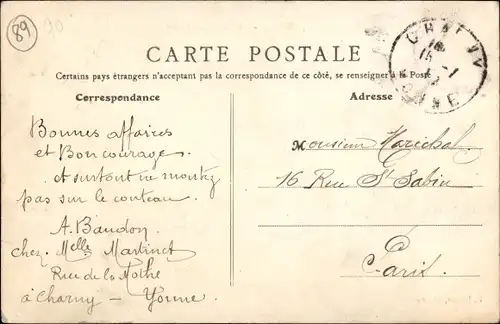 89
CARTE POSTALE
Certains pays étrangers n'acceptant pas la correspondance de ce côté, se renseigner à la Poste
Correspondance
Adresse
Bonnes affaires
et Bon courage.
et surtout ne montez
pas sur le couteau.
A. Baudon
chez Melle Martinet
Rue de la Mothe
à Charny - Yonne
Monsieur Maréchal.
16 Rue St Sabin
à
Paris.
CHARNY
15
YONNE